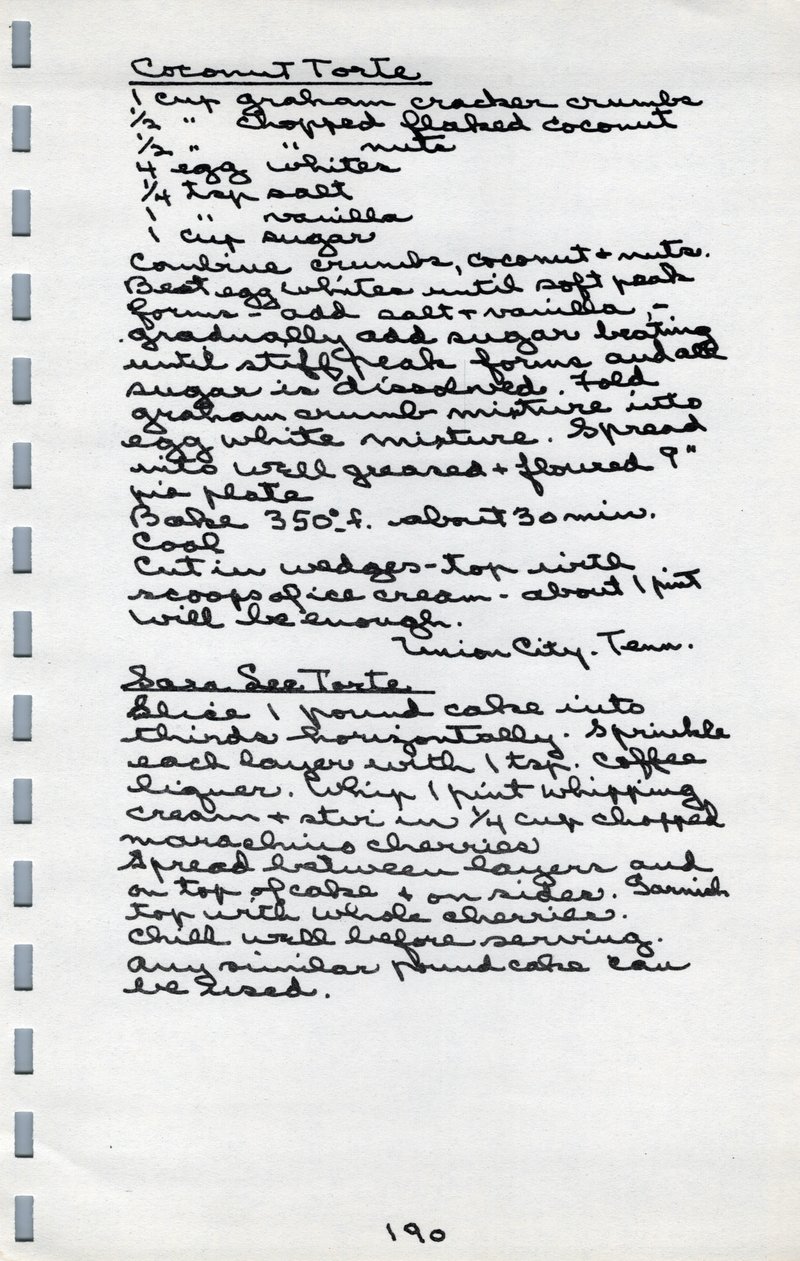 Coconut Torte
1 cup graham cracker crumbs
1/2 " chopped flaked coconut
1/2 " " nuts
4 egg whites
1/4 tsp salt
1 " vanilla
1 cup sugar
Combine crumbs, coconut + nuts.
Beat egg whites until soft peak
forms - add salt + vanilla, -
gradually add sugar beating
until stiff peak forms and all
sugar is dissolved. Fold
graham crumb mixture into
egg white mixture. Spread
into well greased + floured 9"
pie plate
Bake 350° f. about 30 min.
Cool
Cut in wedges - top with
scoops of ice cream - about 1 pint
will be enough.
Union City, Tenn.
Sara Lee Torte
Slice 1 pound cake into
thirds horizontally. Sprinkle
each layer with 1 tsp. coffee
liquer. Whip 1 pint whipping
cream + stir in 1/4 cup chopped
marachino cherries
Spread between layers and
on top of cake + on sides. Garnish
top with whole cherries.
Chill well before serving.
Any similar pound cake can
be used.
190